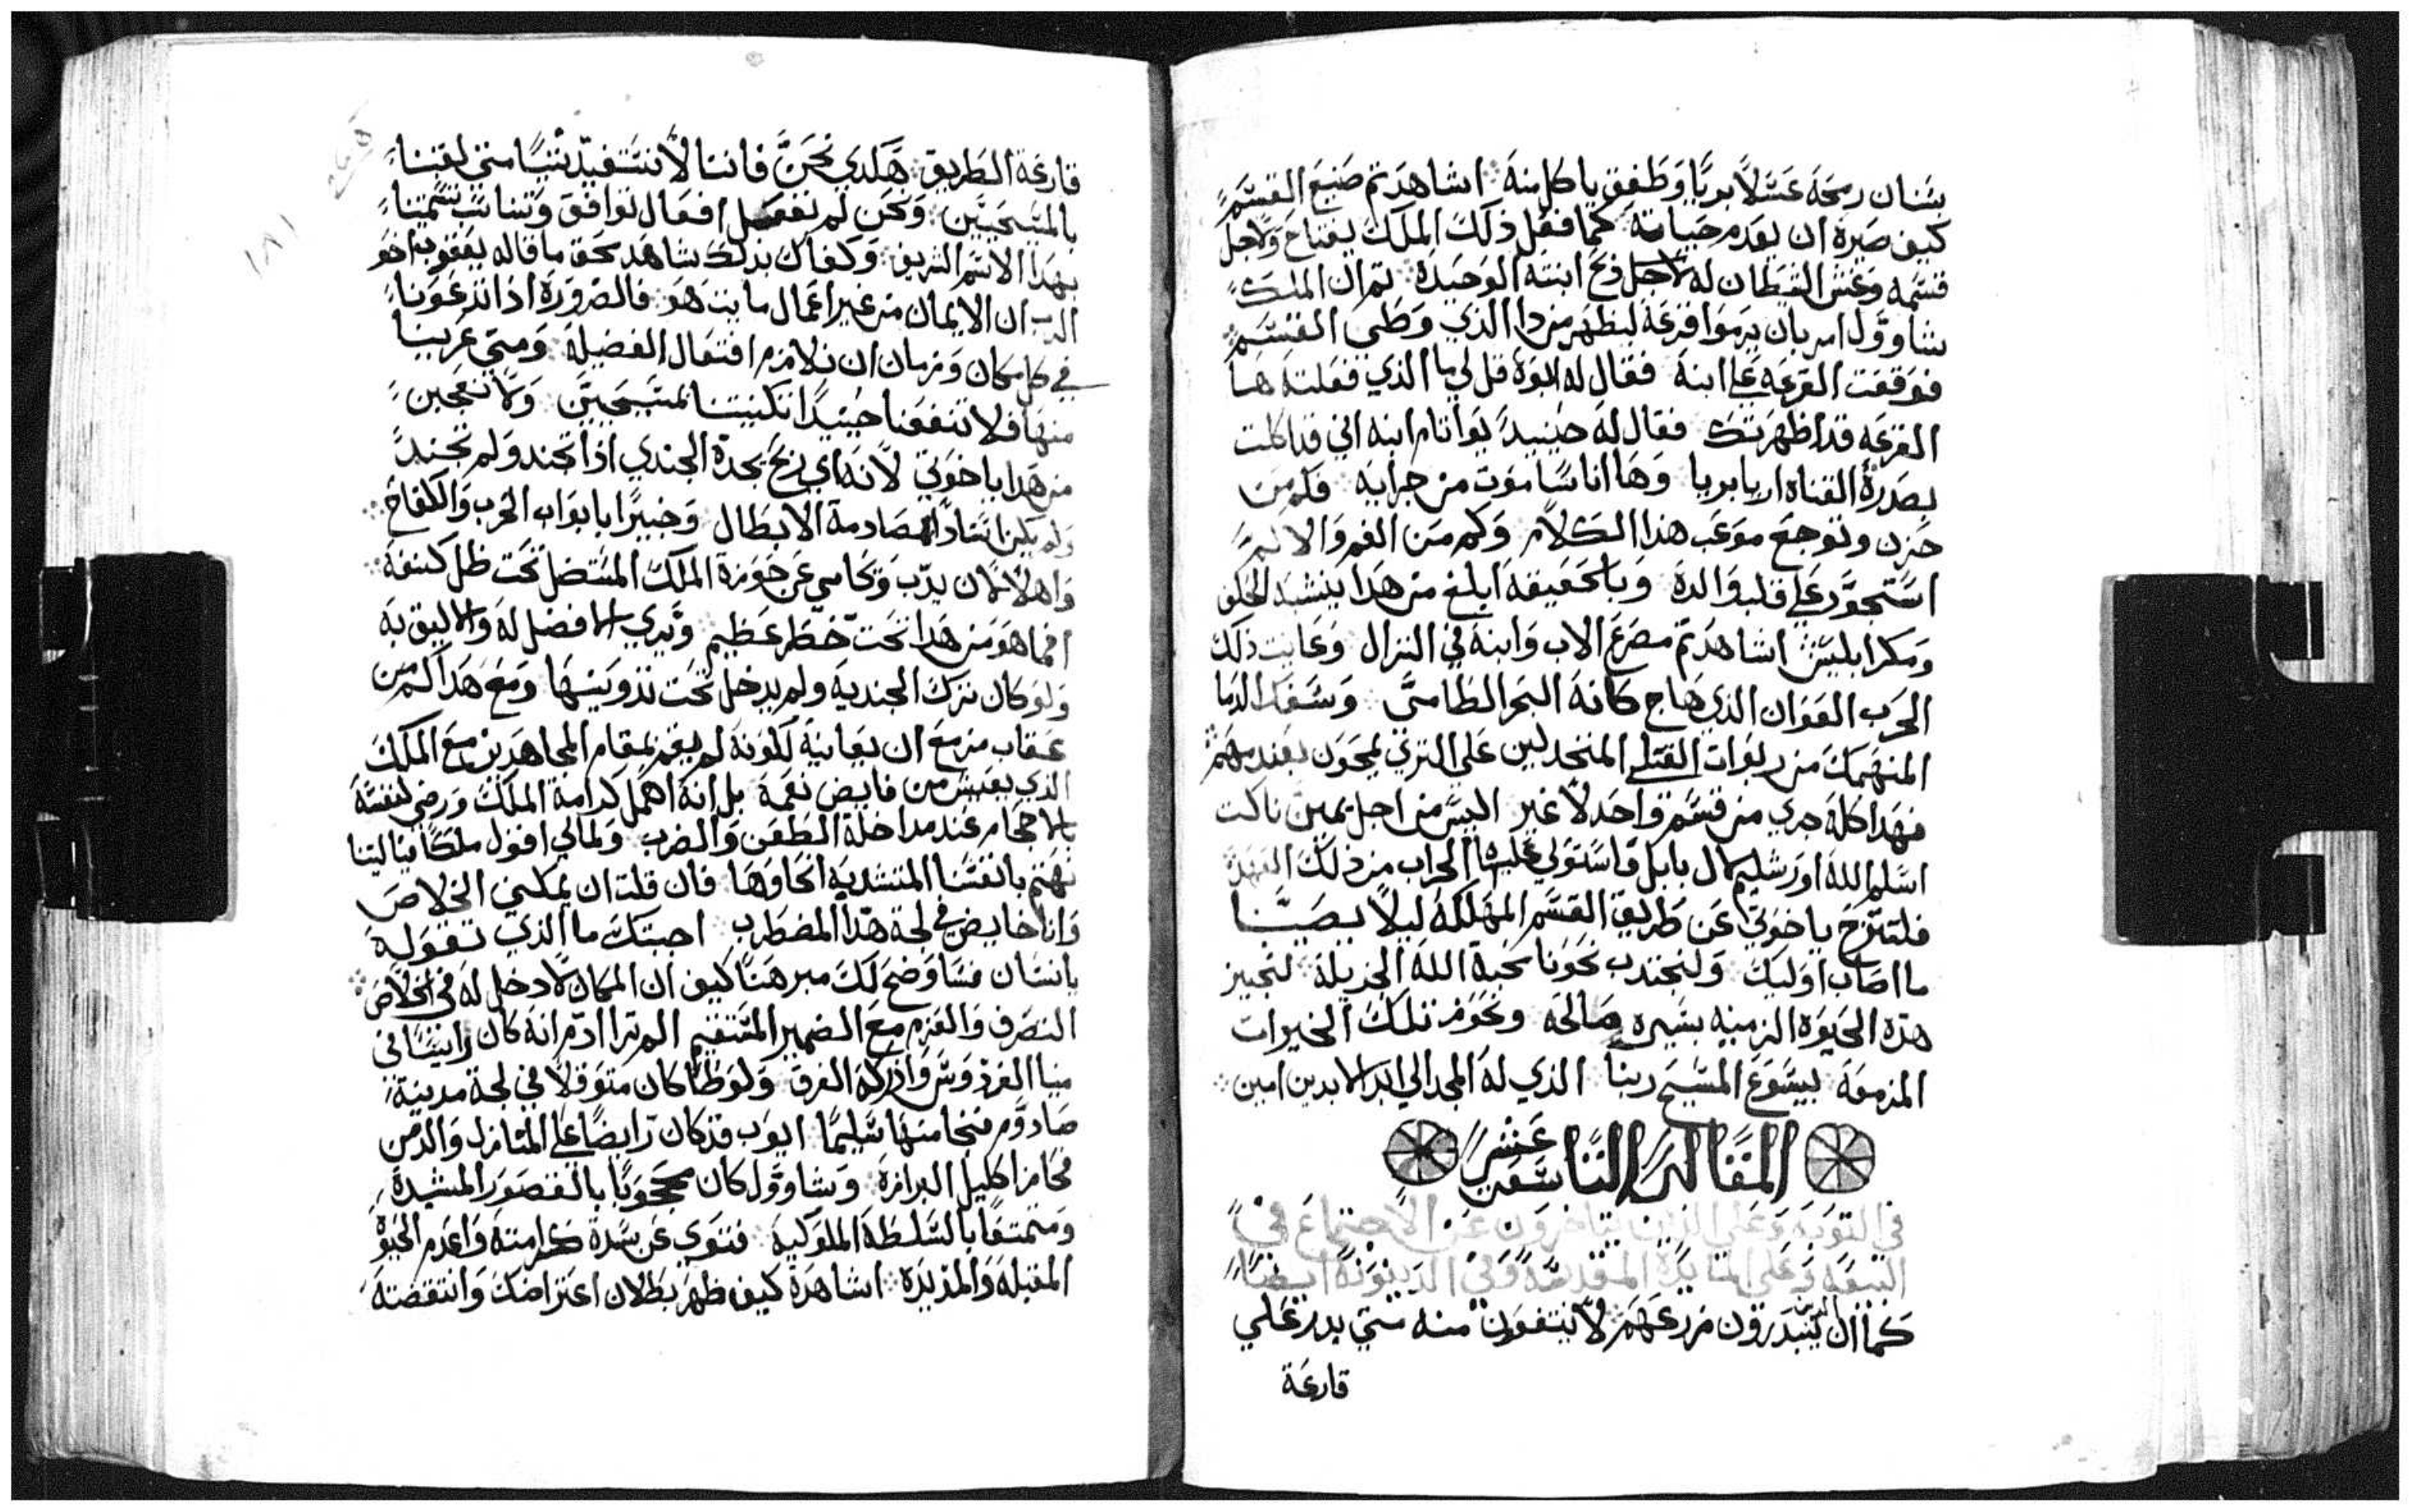 سنان رمحه عسلاً بريا وطفق ياكل منه اشاهدتم صنيع القسم
كيف صيره ان يعدم حياته كما فعل ذلك الملك يفتاح ولاجل
قسمه وغش الشيطان له لاجل ذبح ابنته الوحيدة ثم ان الملك
شاوول امر بان يرموا قرعة ليظهر من ذا الذي وطى القسم
فوقعت القرعه على ابنه فقال له ابوه قل لي ما الذي فعلته ها
القرعه قد اظهرتك فقال له حينيد يواناثام ابنه اني قد اكلت
وها انا ساموت من جرايه فكم من
حزن وتوجع موعب هذا الكلام وكم من الغم والالم
استحوذ على قلب والده وبالحقيقه ابلغ من هذا ينشبه الحلف
ومكر ابليس اشاهدتم مصرع الاب وابنه في النزال وعاينت ذلك
الحرب العوان الذي هاج كانه البحر الطامى وسفك الدما
المنهمك من ربوات القتلى المنجدلين على الثري
فهذا كله جري من قسم واحد لا غير اليس من اجل يمين ناكت
اسلم الله اورشليم لال بابل واستولي عليها الخراب من ذلك العهد
فلننزح ياخوتي عن طريق القسم المهلكه ليلا يصيبنا
ما اصاب اوليك ولنجتدب نحونا محبة الله الجزيلة لنجيز
هذه الحيوه الزمنيه بسيره صالحه ونحوز تلك الخيرات
المزمعه بيسوع المسيح ربنا الذي له المجد الي ابد الابدين امين
المقالة التاسعة عشر
في التوبة وعلى الذين يتاخرون عن الاجتماع في
البيعه وعلى المايدة المقدسة وفي الدينونة ايضا
كما ان الذين يبدرون زرعهم لا ينتفعون منه متي بدر علي
قارعة
قارعة الطريق هكدي نحن فاننا لا نستفيد شيا متي لقبنا
بالمسيحيين ونحن لم نفعل افعال توافق وتناسب تسميتنا
بهذا الاسم الشريف وكفاك بذلك شاهد بحق ما قاله يعقوب اخو
الرب ان الايمان من غير اعمال مايت هو فالضرورة اذا تدعونا
في كل مكان وزمان ان نلازم افتعال الفضيلة ومتي عرينا
منها فلا تنفعنا حينيدا تكنيتنا لمسيحيين ولا تعجبن
من هدا ياخوتي لانه اي ربح يجده الجندي اذا تجند ولم تجند
ولم يكن استادا لمصادمة الابطال وخبيرا بابواب الحرب والكفاح
واهلا لان يدب وتحامي عن حوزة الملك المستضل تحت ظل كنفه
افما هو من هدا تحت خطر عظيم وتري الافضل له والاليق به
ولو كان ترك الجنديه ولم يدخل تحت تدوينها ومع هدا كم من
عقاب مزمع ان يعاينه لكونه لم يقم بمقام المجاهدين مع الملك
الذي يعيش من فايض نعمه بل انه اهمل كرامة الملك ورضي لنفسه
بالاحجام عند مداخلة الطعن والضرب ولمالي اقول ملكا فياليتنا
نهتم بانفسنا فان قلت ان يمكني الخلاص
وانا خايض في لجة هذا المضطرب اجبتك ما الذي تقوله
يانسان فساوضح لك مبرهنا كيف ان المكان لا دخل له في الخلاص
التصرف والعزم مع الضمير المستقيم الم ترا ادم انه كان
مينا الفردوس وادركه الغرق ولوطا كان متوغلا في لجة مدينة
صادوم فنجا منها سليما ايوب فد كان رابضا على المنازل والدمن
فحاز اكليل البرارة وشاوول كان محجوبا بالقصور المشيدة
ومتمتعا بالسلطة الملوكية فتوي عن سدة كرامته واعدم الحيوة
المقبله والمزيدة اشاهدة كيف ظهر بطلان اعتراضك وانتقضته